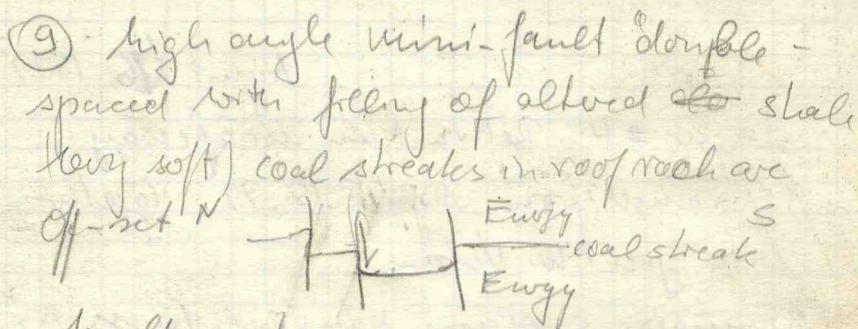 ⑨ high angle mini-fault "double-
spaced with filling of altered shale
(very soft) coal streaks in roof rock are
off-set N
S
coal streak